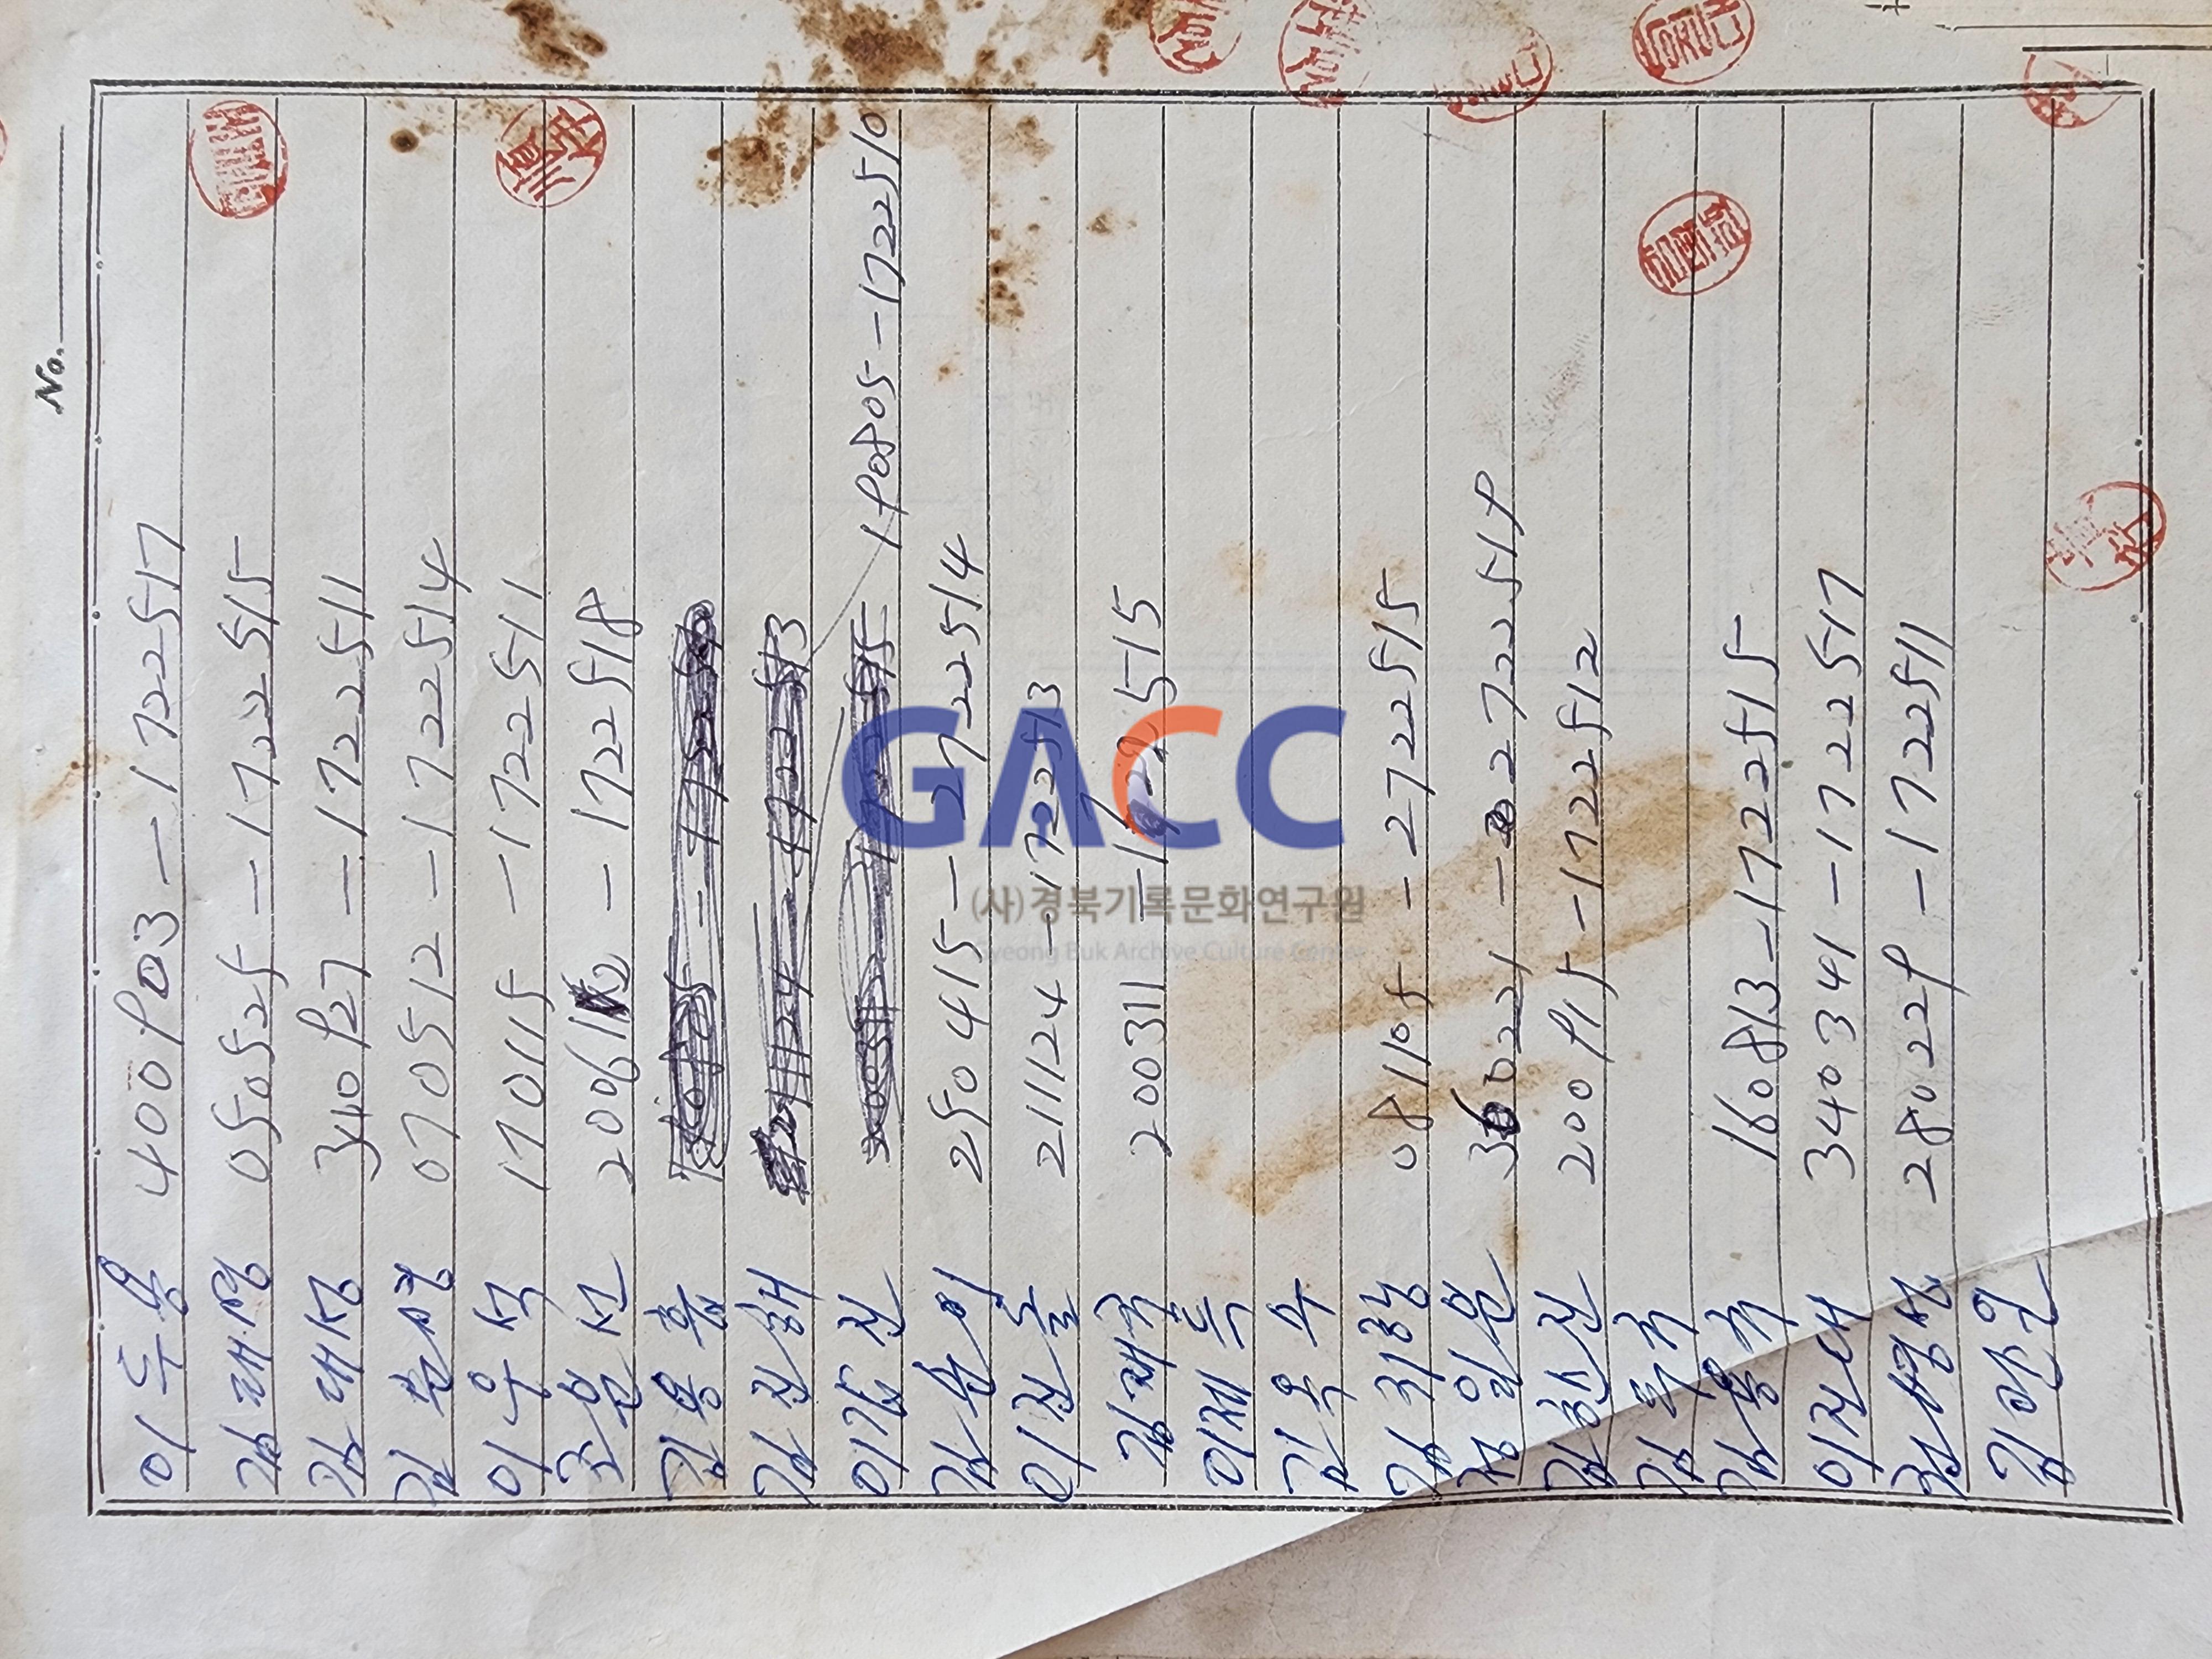 No.
이두용 400903-1722517
김재명 050525-1722515
김대성 340927-1722511
김현성 070512-1722514
이우석 170115-1722511
고훈선 2006-1722518
김용훈
김진해
이갑진 190805-1722510
김순이 250415-2722514
이진돌 211124-1722513
김재국 200311-1722515
이제득
김옥수
김귀행 081105-2722515
정일분 2722519
김한진 200915-1722512
김득규
김용규 160813-1722515
이진대 340341-1722517
권병성 280229-1722511
김만인
GACC
(사)경북기록문화연구원
Gyeong Buk Archive Culture Center